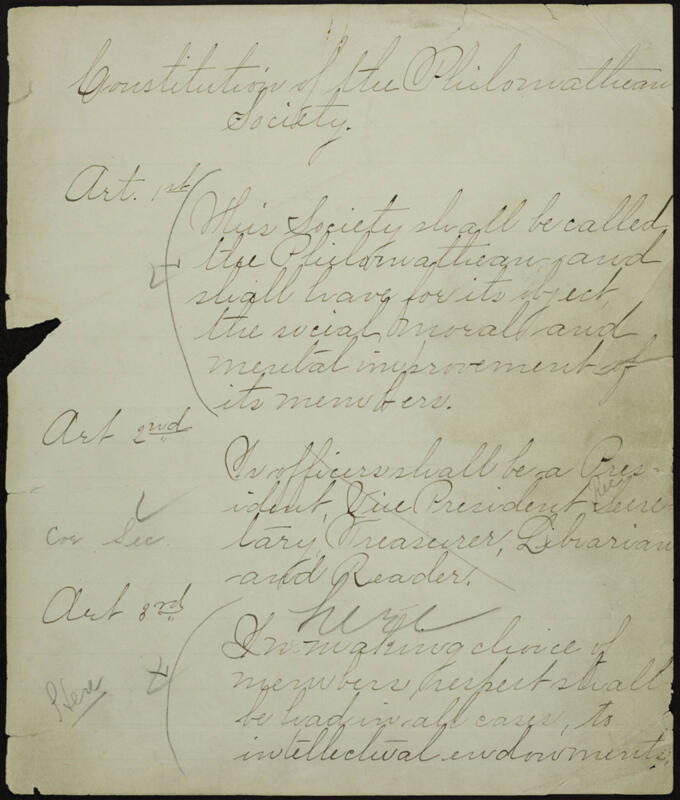 Constitution of the Philomathean
Society.
Art. 1st
This Society shall be called
the Philomathean, and
shall have for its object,
the social, moral and
mental improvement of
its members.
Art 2nd
Is officers shall be a Pres-
ident, Vice President Rec Secre-
tary, Treasurer, Librarian
and Reader.
Cor Sec
Art 3rd
here
In making choice of
members, respect shall
be had in all cases, to
intellectual endowments,
Here